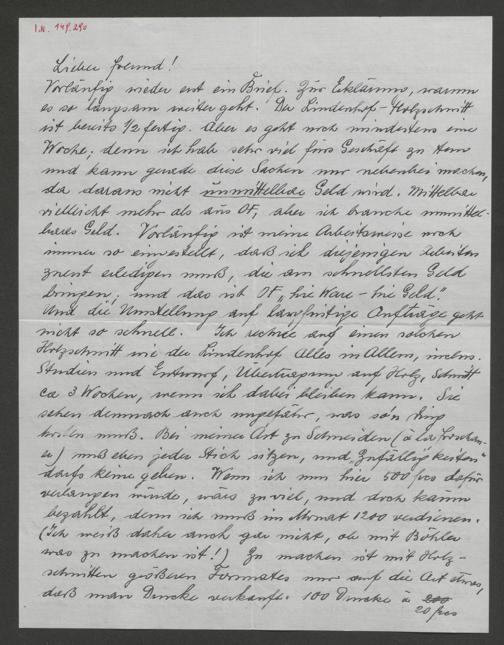 I.N. 149.290
Lieber Freund!
Vorläufig wieder erst ein Brief. Zur Erklärung, warum
es so langsam weiter geht. Der Lindenhof-Holzschnitt
ist bereits 1/2 fertig. Aber es geht noch mindestens eine
Woche; denn ich habe sehr viel fürs Geschäft zu tun
und kann gerade diese Sachen nur nebenbei machen,
da daraus nicht unmittelbar Geld wird. Mittelbar
vielleicht mehr als aus OF, aber ich brauche unmittel-
bares Geld. Vorläufig ist meine Arbeitsweise noch
immer so eingestellt, daß ich diejenigen Arbeiten
zuerst erledigen muß, die am schnellsten Geld
bringen, und das ist OF „hie Ware – hie Geld".
Und die Umstellung auf langfristige Aufträge geht
nicht so schnell. Ich rechne auf einen solchen
Holzschnitt wie der Lindenhof Alles in Allem, inclus.
Studien und Entwurf, Übertragung auf Holz, Schnitt
ca 3 Wochen, wenn ich dabei bleiben kann. Sie
sehen demnach auch ungefähr, was so'n Ding
kosten muß. Bei meiner Art zu Schneiden (à la
) muß eben jeder Stich sitzen, und „Zufälligkeiten"
darfs keine geben. Wenn ich nun hier 500 frcs dafür
verlangen würde, wärs zu viel, und doch kaum
bezahlt, denn ich muß im Monat 1200 verdienen.
(Ich weiß daher auch gar nicht, ob mit Böhler
was zu machen ist!) Zu machen ist mit Holz-
schnitten größeren Formates nur auf die Art etwas,
daß man Drucke verkaufe. 100 Drucke à 200
20 frcs